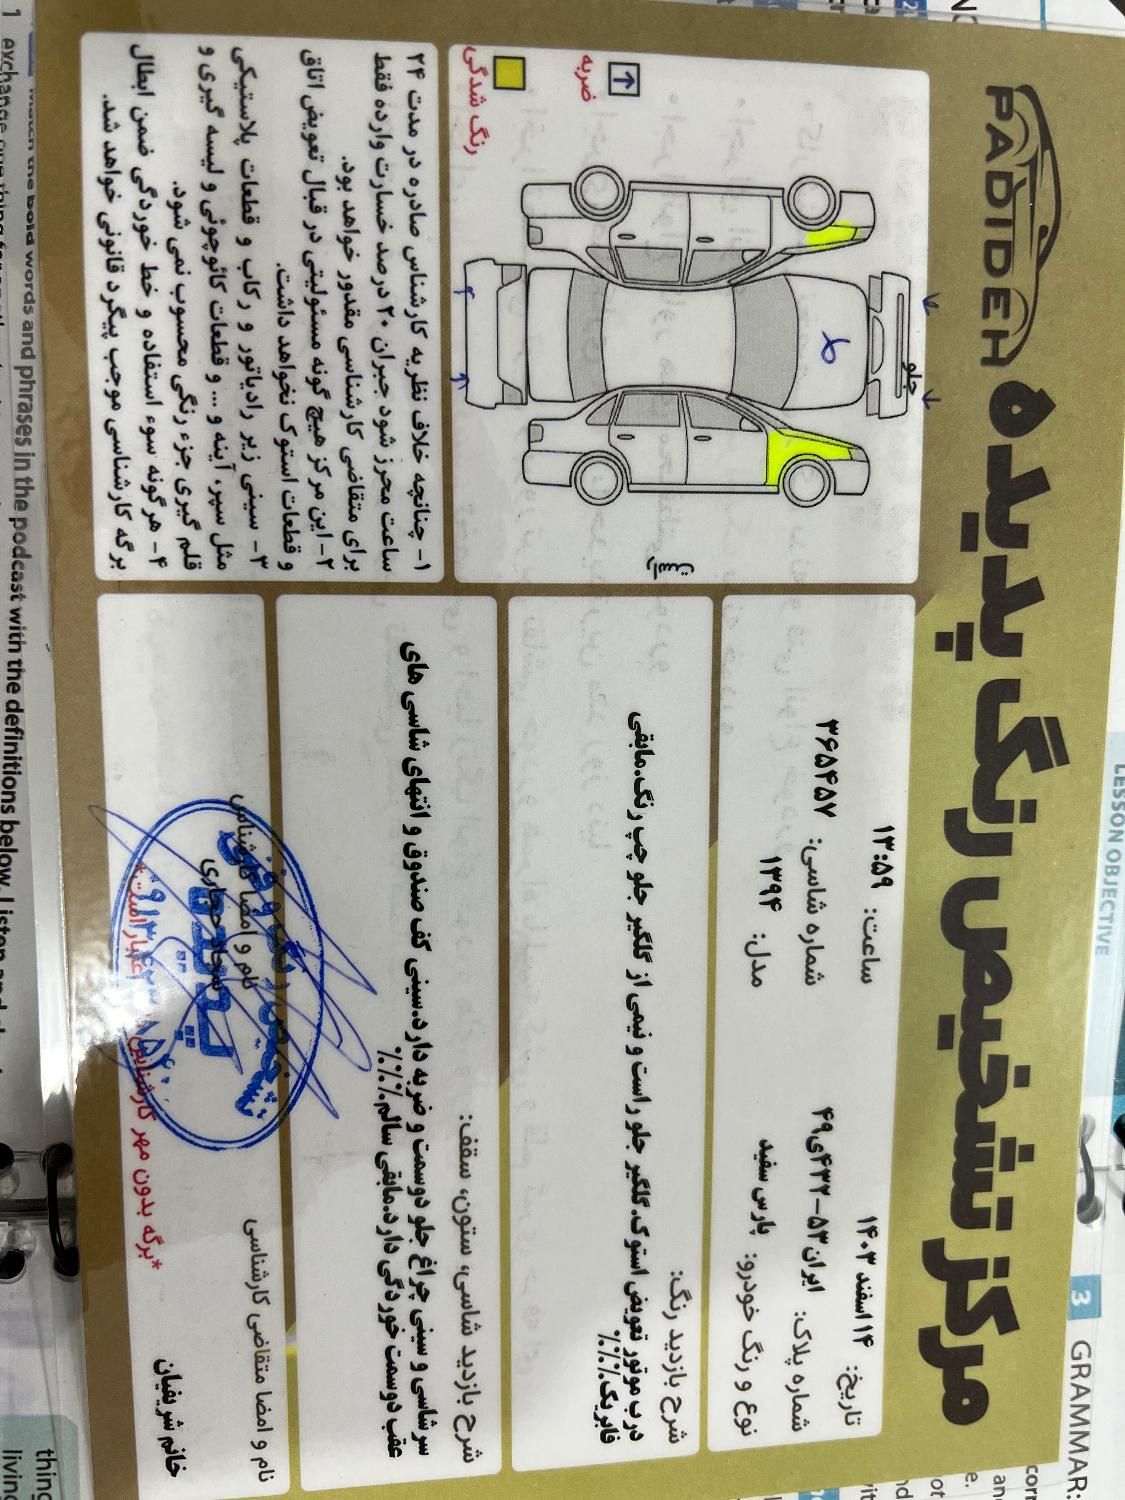 PADIDEH
مرکز تشخیص رنگ پدیده
تاریخ: ۱۴ اسفند ۱۴۰۳
ساعت: ۱۳:۵۹
شماره پلاک: ایران۵۳-۴۳۲ی۴۹
شماره شاسی: ۳۶۵۴۵۷
نوع و رنگ خودرو: پارس سفید
مدل: ۱۳۹۴
شرح بازدید رنگ:
درب موتور تعویض استوک.گلگیر جلو راست و نیمی از گلگیر جلو چپ رنگ.مابقی
فابریک.%%
شرح بازدید شاسی، ستون، سقف:
سر شاسی و سینی چراغ جلو دوسمت و ضربه دارد.سینی کف صندوق و انتهای شاسی های
عقب دوسمت خوردگی دارد.مابقی سالم.%%
نام و امضا متقاضی کارشناسی
خانم شریفیان
نام و امضا کارشناس
سجاد حجازی
*برگه بدون مهر کارشناس
جلو
ضربه
رنگ شدگی
۱- چنانچه خلاف نظریه کارشناس صادره در مدت ۲۴
ساعت محرز شود جبران ۲۰ درصد خسارت وارده فقط
برای متقاضی کارشناسی مقدور خواهد بود.
۲- این مرکز هیچ گونه مسئولیتی در قبال تعویض اتاق
و قطعات استوک نخواهد داشت.
۳- سینی زیر رادیاتور و رکاب و قطعات پلاستیکی
مثل سپر، آینه و ... و قطعات کائوچوئی و لیسه گیری و
قلم گیری جزء رنگی محسوب نمی شود.
۴- هرگونه سوء استفاده و خط خوردگی ضمن ابطال
برگه کارشناسی موجب پیگرد قانونی خواهد شد.
LESSON OBJECTIVE
3 GRAMMAR:
words and phrases in the podcast with the definitions below. Listen and